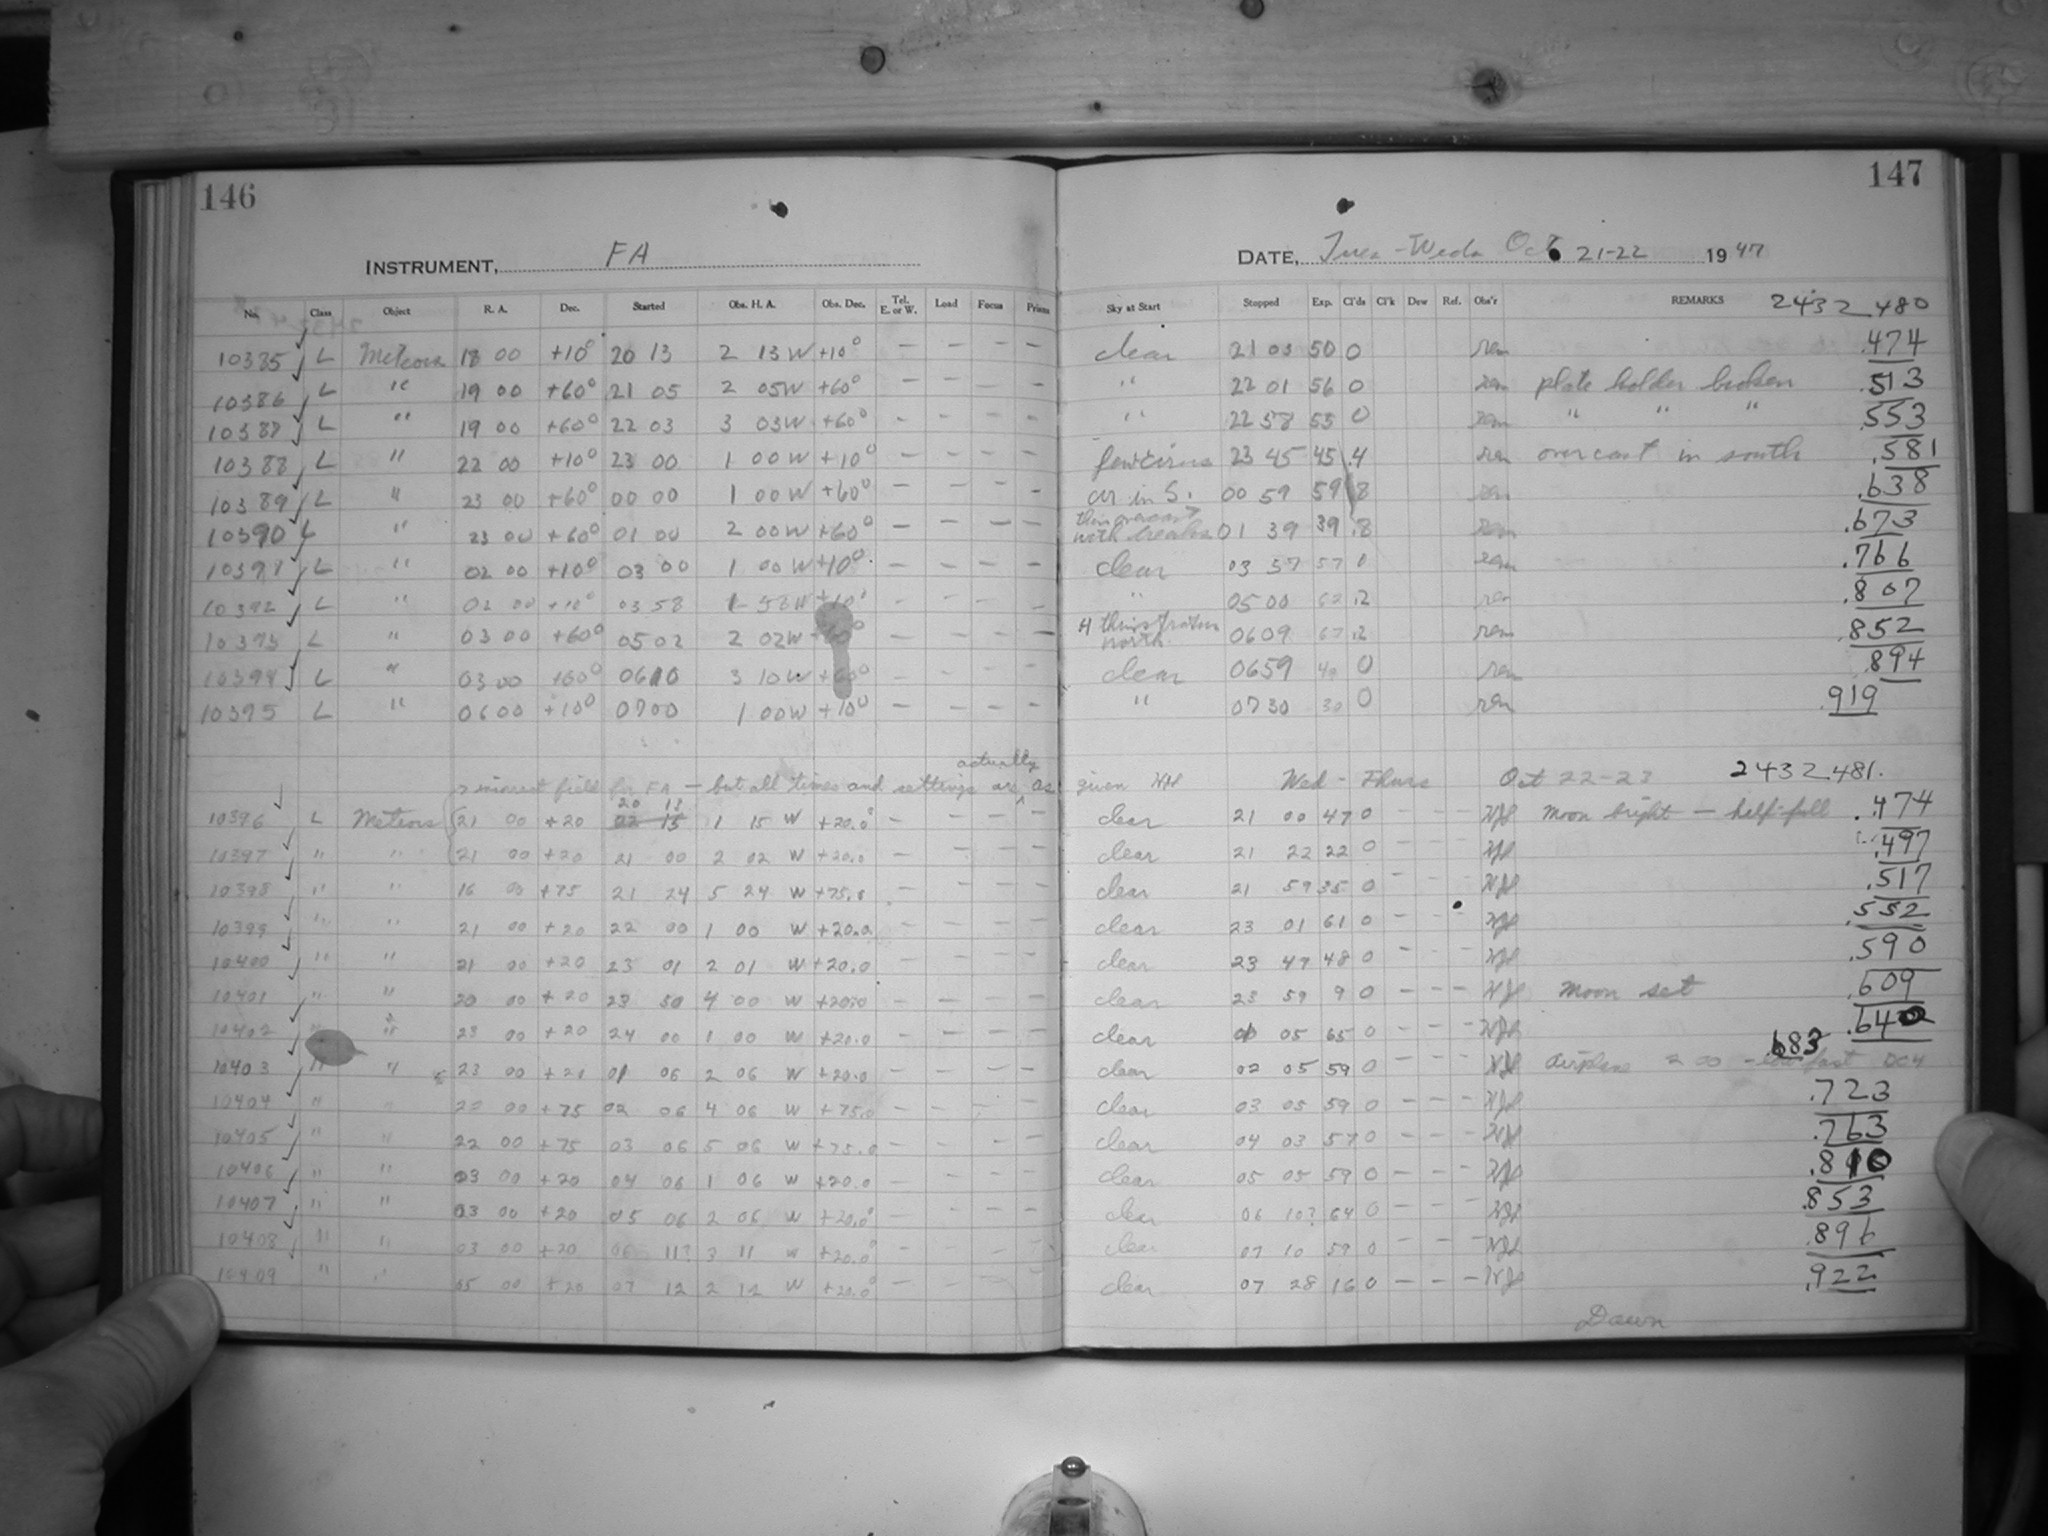 146
147
INSTRUMENT, FA
DATE, Tues - Weds Oct 21-22 1947
No. Class Object R. A. Dec. Started Obs. H. A. Obs. Dec. Tel. E. or W. Load Focus Prisms Sky at Start Stopped Exp. Cl'ds Cl'k Dew Ref. Obs'r REMARKS 2432480
10385 L Meteors 18 00 +10° 20 13 2 13W +10° — — — — clear 21 03 50 0 rem .474
10386 L " 19 00 +60° 21 05 2 05W +60° — — — — " 22 01 56 0 rem plate holder broken .513
10387 L " 19 00 +60° 22 03 3 03W +60° — — — — " 22 58 55 0 rem " " " .553
10388 L " 22 00 +10° 23 00 1 00W +10° — — — — few cirrus 23 45 45 .4 rem overcast in south .581
10389 L " 23 00 +60° 00 00 1 00W +60° — — — — in S. 00 59 59 .8 rem .638
10390 L " 23 00 +60° 01 00 2 00W +60° — — — — thin overcast with breaks 01 39 39 .8 rem .673
10391 L " 02 00 +10° 03 00 1 00W +10° — — — — clear 03 57 57 0 rem .766
10392 L " 02 00 +10° 03 58 1 58W +10° — — — — " 05 00 62 .2 rem .807
10393 L " 03 00 +60° 05 02 2 02W — — — — thin stratus north 0609 67 .2 rem .852
10394 L " 03 00 +60° 0610 3 10W +60° — — — — clear 0659 49 0 rem .894
10395 L " 06 00 +10° 0700 1 00W +10° — — — — " 0730 30 0 rem .919
actually
incorrect field for FA — but all times and settings are ^ as given Wed - Thurs Oct 22-23 2432481.
20 13
10396 L Meteors 21 00 +20 22 15 1 15 W +20.0° — — — — clear 21 00 47 0 — — — Moon bright — half-full .474
10397 " " 21 00 +20 21 00 2 02 W +20.0 — — — — clear 21 22 22 0 — — .497
10398 " " 16 00 +75 21 24 5 24 W +75.0 — — — — clear 21 59 35 0 — — .517
10399 " " 21 00 +20 22 00 1 00 W +20.0 — — — — clear 23 01 61 0 — — .552
10400 " " 21 00 +20 23 01 2 01 W +20.0 — — — — clear 23 47 48 0 — — .590
10401 " " 20 00 +20 23 50 4 00 W +20.0 — — — — clear 23 59 9 0 — — — Moon set .609
10402 " " 23 00 +20 24 00 1 00 W +20.0 — — — — clear 01 05 65 0 — — — .640
10403 " " 23 00 +20 01 06 2 06 W +20.0 — — — — clear 02 05 59 0 — — — airplane 2 00 — low fast DC4 .683
10404 " " 22 00 +75 02 06 4 06 W +75.0 — — — — clear 03 05 59 0 — — — .723
10405 " " 22 00 +75 03 06 5 06 W +75.0 — — — — clear 04 03 57 0 — — — .763
10406 " " 03 00 +20 04 06 1 06 W +20.0 — — — — clear 05 05 59 0 — — — .810
10407 " " 03 00 +20 05 06 2 06 W +20.0° — — — — clear 06 10? 64 0 — — — .853
10408 " " 03 00 +20 06 11? 3 11 W +20.0 — — — — clear 07 10 59 0 — — — .896
10409 " " 05 00 +20 07 12 2 12 W +20.0° — — — — clear 07 28 16 0 — — — .922
Dawn